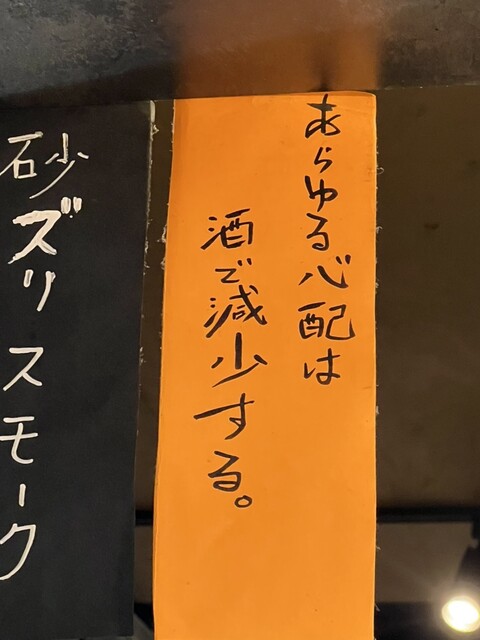 あらゆる心配は
酒で減少する。
砂ズリスモーク